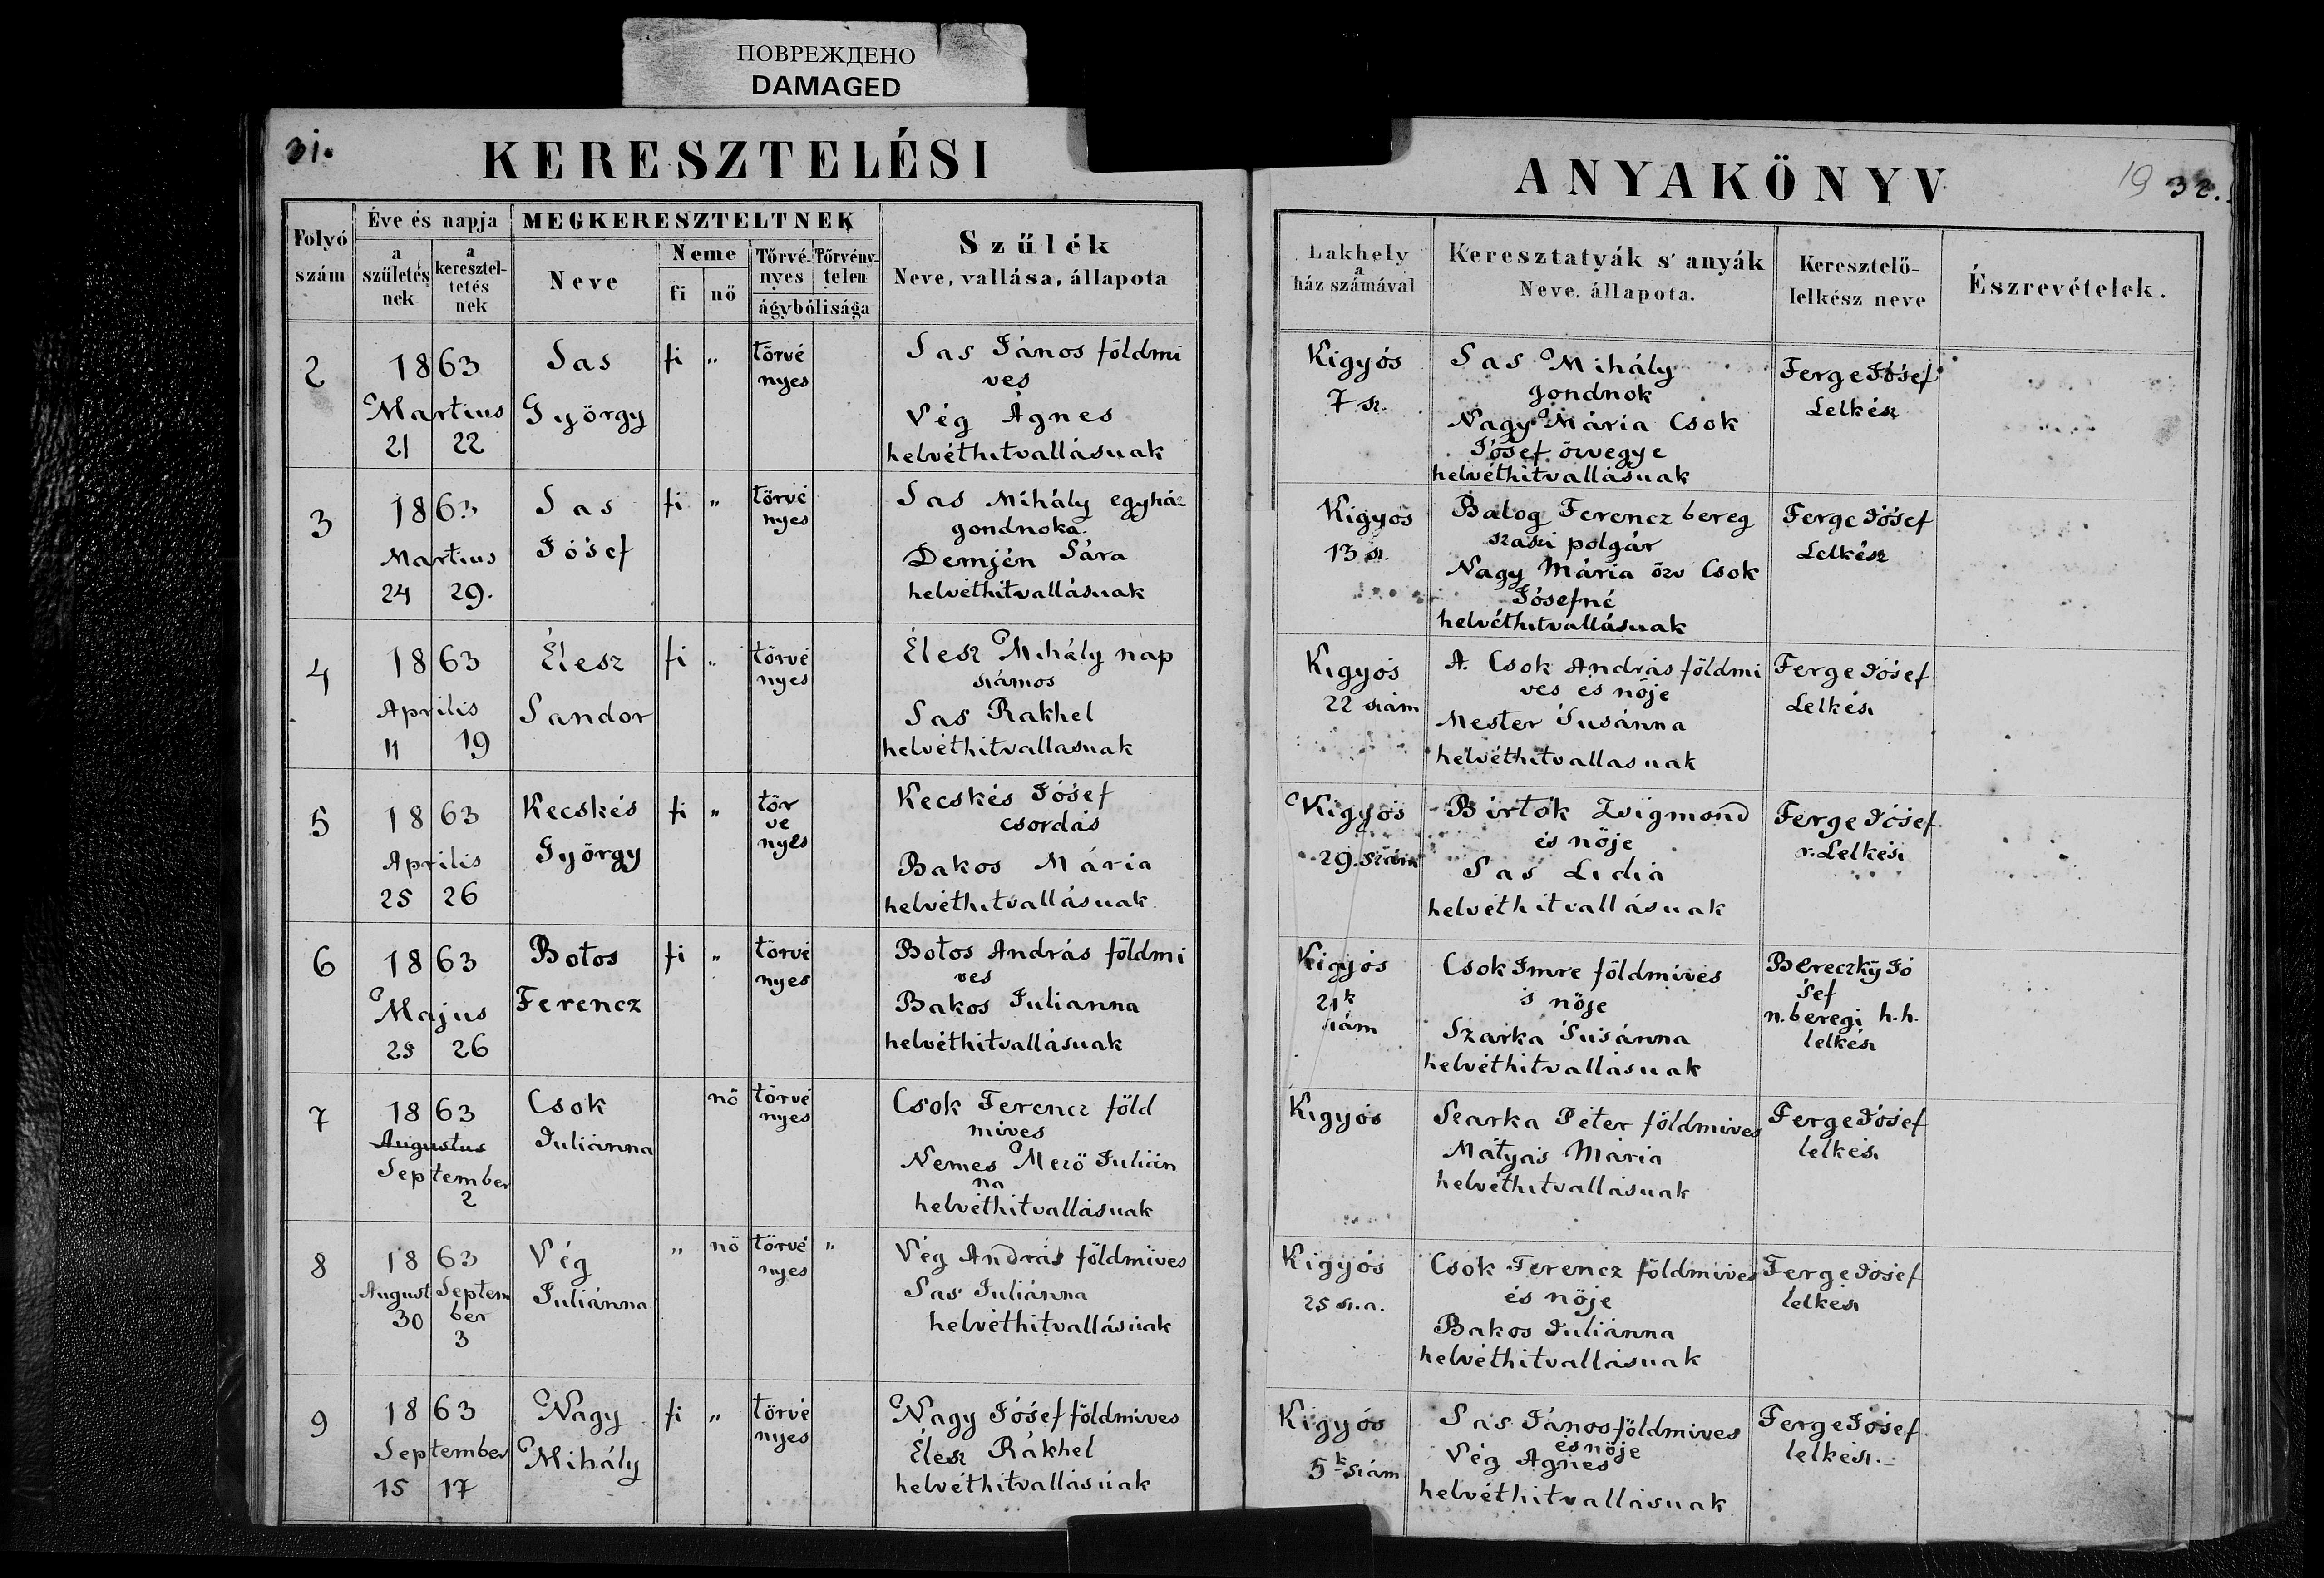 ПОВРЕЖДЕНО
DAMAGED
31.
KERESZTELÉSI
Folyó szám
Éve és napja
a születés nek
a keresztel- tetés nek
MEGKERESZTELTNEK
Neve
Neme
fi
nő
Törvé- nyes
Törvény- telen
ágybólisága
Szűlék
Neve, vallása, állapota
2
1863
Martius
21 22
Sas
György
fi
"
törvé
nyes
Sas János földmi
ves
Vég Ágnes
helvéthitvallásuak
3
1863
Martius
24 29.
Sas
Jósef
fi
"
törvé
nyes
Sas Mihály egyház
gondnoka
Demjén Sára
helvéthitvallásuak
4
1863
Aprilis
11 19
Élesz
Sandor
fi
"
törvé
nyes
Élesz Mihály nap
számos
Sas Rakhel
helvéthitvallasuak
5
1863
Aprilis
25 26
Kecskés
György
fi
"
tör
ve
nyes
Kecskés Jósef
csordás
Bakos Mária
helvéthitvallásuak
6
1863
Majus
25 26
Botos
Ferencz
fi
"
törvé
nyes
Botos András földmi
ves
Bakos Julianna
helvéthitvallásuak
7
1863
Augustus
September
2
Csok
Juliánna
nő
törvé
nyes
Csok Ferencz föld
mives
Nemes Mező Julián
na
helvéthitvallásuak
8
1863
August Septem
30 ber
3
Vég
Juliánna
"
nő
törvé
nyes
"
Vég András földmives
Sas Juliánna
helvéthitvallásuak
9
1863
September
15 17
Nagy
Mihály
fi
"
törvé
nyes
Nagy Jósef földmives
Élesz Rákhel
helvéthitvallásuak
ANYAKÖNYV
19 32.
Lakhely
a
ház számával
Keresztatyák s' anyák
Neve, állapota.
Keresztelő-
lelkész neve
Észrevételek.
Kigyós
7 sz.
Sas Mihály
gondnok
Nagy Mária Csok
Jósef özvegye
helvéthitvallásuak
Ferge Jósef
Lelkész
Kigyos
13 sz.
Balog Ferencz bereg
szaszi polgár
Nagy Mária özv Csok
Jósefné
helvéthitvallásuak
Ferge Jósef
Lelkész
Kigyós
22 szám
A. Csok András földmi
ves és nője
Mester Susánna
helvéthitvallasuak
Ferge Jósef
Lelkész
Kigyós
29. szám
Birtok Zsigmond
és nője
Sas Lidia
helvéthitvallásuak
Ferge Jósef
r. Lelkész
Kigyós
21k
szám
Csok Imre földmives
s nője
Szarka Susánna
helvéthitvallásuak
Bereczky Jó
sef
n. beregi h.h.
lelkész
Kigyós
Szarka Péter földmives
Mátyás Mária
helvéthitvallásuak
Ferge Jósef
lelkész
Kigyós
25 sz.a.
Csok Ferencz földmives
és nője
Bakos Juliánna
helvéthitvallásuak
Ferge Jósef
lelkész
Kigyós
5k szám
Sas János földmives
és nője
Vég Agnes
helvéthitvallásuak
Ferge Jósef
lelkész.